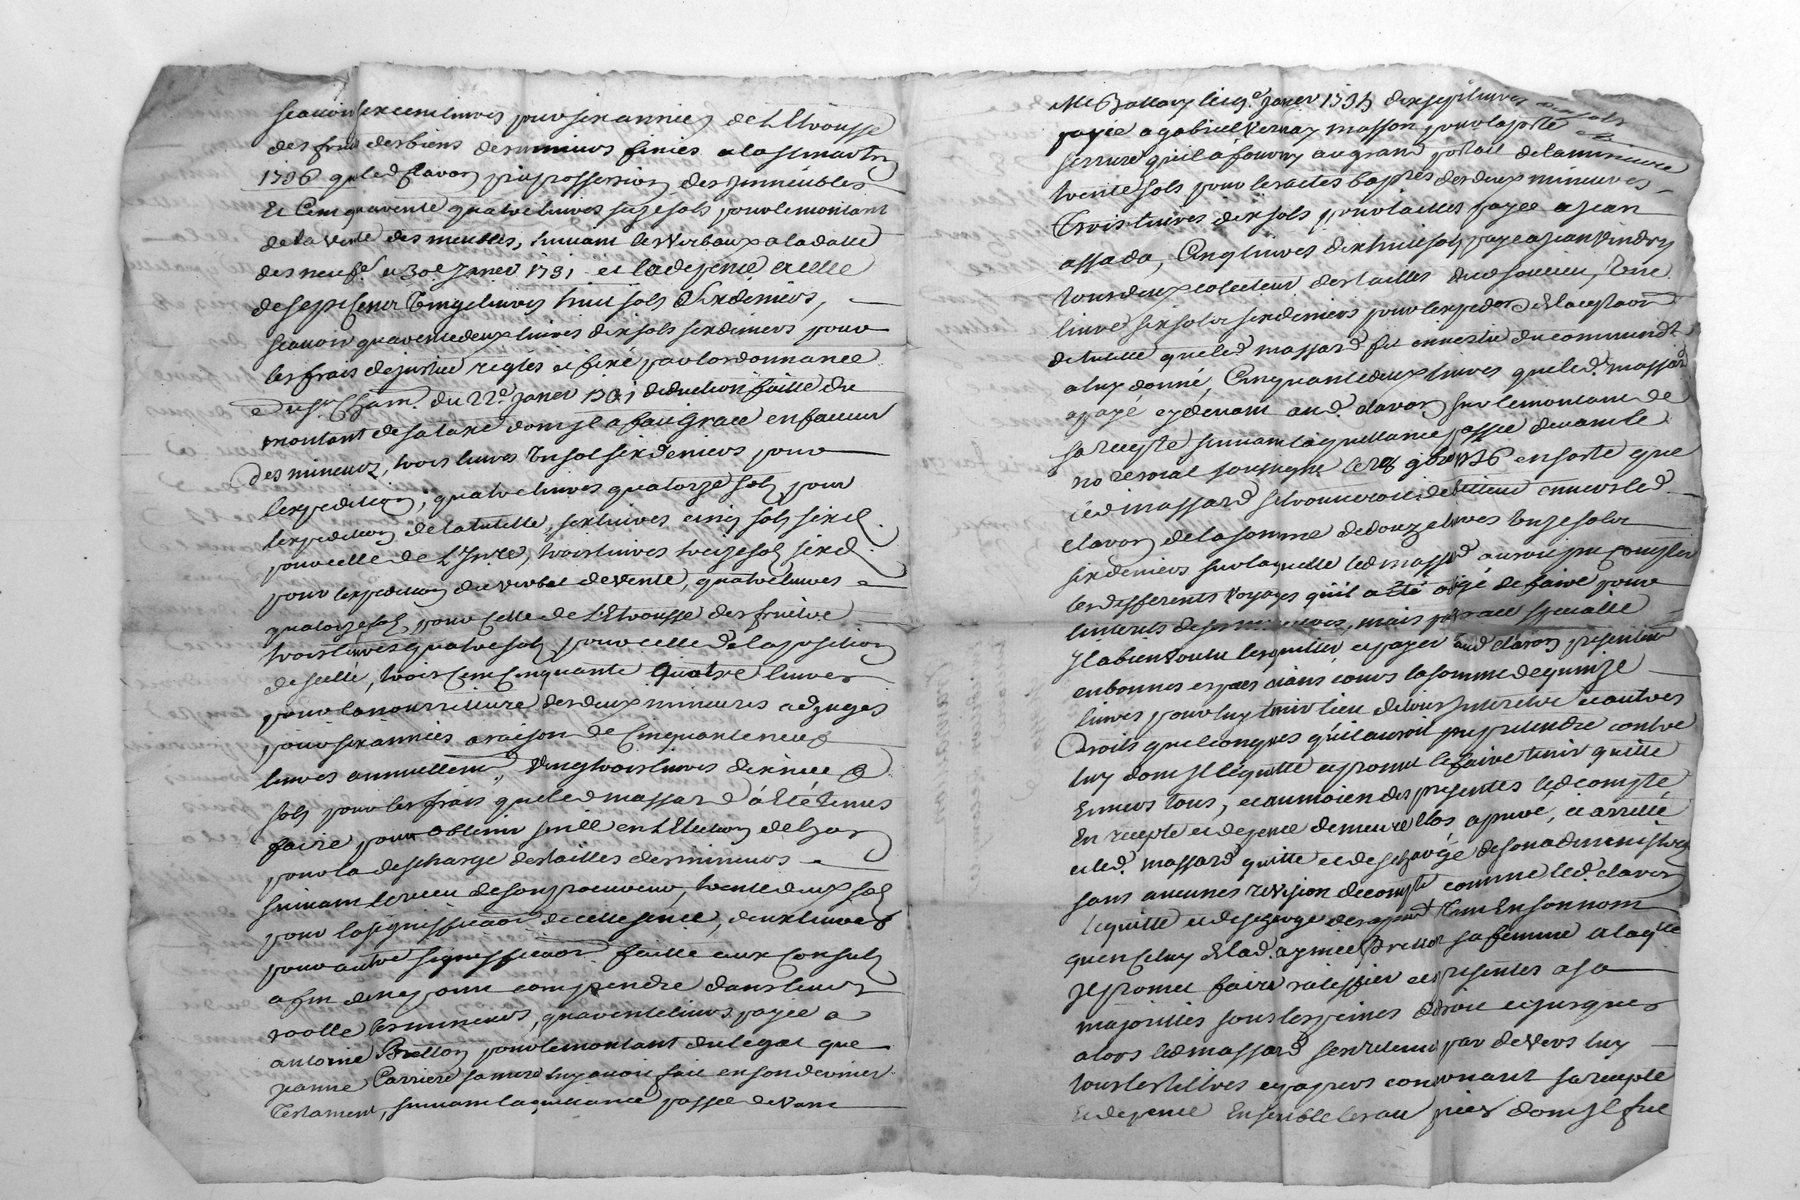 scavoir six cent livres pour six années de L'Etrousse
des fruis des biens des mineurs finies a la st martin
1736 que led Clavon pris possession des immeubles
Et Cent quarente quatre livres seze sols pour le montant
de la vente des meubles, suivant les verbaux a la datte
des neufe et 30e Janvier 1731 et la depence excelle
de sept Cent livres huit sols six deniers,
scavoir quarente deux livres dix sols six deniers pour
les frais de justice regles et fixé par lordonnance
du 22e Janer 1731 deduction faitte du
montant de sa taxe dont il a fait grace en faveur
Des mineurs, trois livres un sol six deniers pour
lexpedition, quatre livres quatorze sols pour
lexpedition de la tutelle, six livres cinq sols six d
pour celle de L'Inre, trois livres treize sols six d
pour lexpedition du verbal de vente, quatre livres
quatorze sols pour Celle de L'Etrousse des fruits
trois livres quatre sols pour celle de laposition
de scellé, trois Cent Cinquante Quatre livres
pour la nourriture des deux mineures adjugés
pour six années a raison de Cinquante neuf
livres annuellement, vingt trois livres dix neuf
sols pour les frais que led massard a Eté tenus
faire pour obtenir snce en L'Election de Lyon
pour la descharge des tailles des mineurs
suivant le receu de son procureur, trente deux sols
pour la signiffication de celle sence, deux livres
pour autre signiffication faitte aux Consuls
afin de ne point comprendre dans leur
roolle les mineurs, quarente livres payée a
antoine Bretton pour le montant du legat que
jeanne Carriere sa mere luy avoit fait en son dernier
Testament, suivant la quittance passée devant
Me Janer 1731 dix sept livres
payée a gabriel Vernay masson pour la porte
serrure qu'il a fourny au grand portail de la mineure
trente sols pour les actes baptes des deux mineures
Trois livres dix sols pour tailles payée a Jean
assada, Cinq livres dix huit sols payé a Jean Vindry
tous deux colecteur des tailles dud
livre six sols six deniers pour lexpedon de laceptaon
de tutelle que led massard fit du commandt
a luy donné, Cinquante deux livres que led massard
a payé cy devant aud clavon sur le montant de
sa recepte suivant la quittance passée devant le
no royal soussigné 1736 en sorte que
led massard se trouveroit debitteur envers led
Clavon de la somme de douze livres unze sols
six deniers sur laquelle led massd auroit pu Compter
les differents voyages qu'il a été obgé de faire pour
linterits de ses mineures, mais par grace specialle
Il a bien voulu lesquitter et payer aud clavon presentemt
en bonnes espces aians cours la somme de quinze
livres pour luy tenir lieu de tous Interetes et autres
Droits quelconques qu'il auroit pu pretendre contre
luy dont Il le quitte et promet le faire tenir quitte
Envers tous, et au moien des presentes led compte
En recepte et depence demeure Clos apruvé, et arretté
et led massard quitte et deschargé de son administraon
sans aucunes revision de compte comme led clavon
le quitte et descharge des apresent Tant En son nom
qu'en Celuy de lad aymée Bretton sa femme a laqlle
Il promet faire ratiffier ces presentes a sa
majorittés sous les peines de droit et jusques
alors led massard sera retenu par devers luy
tous les tiltres et papiers concernant sa recepte
Et depence Ensemble les au pces dont Il fut